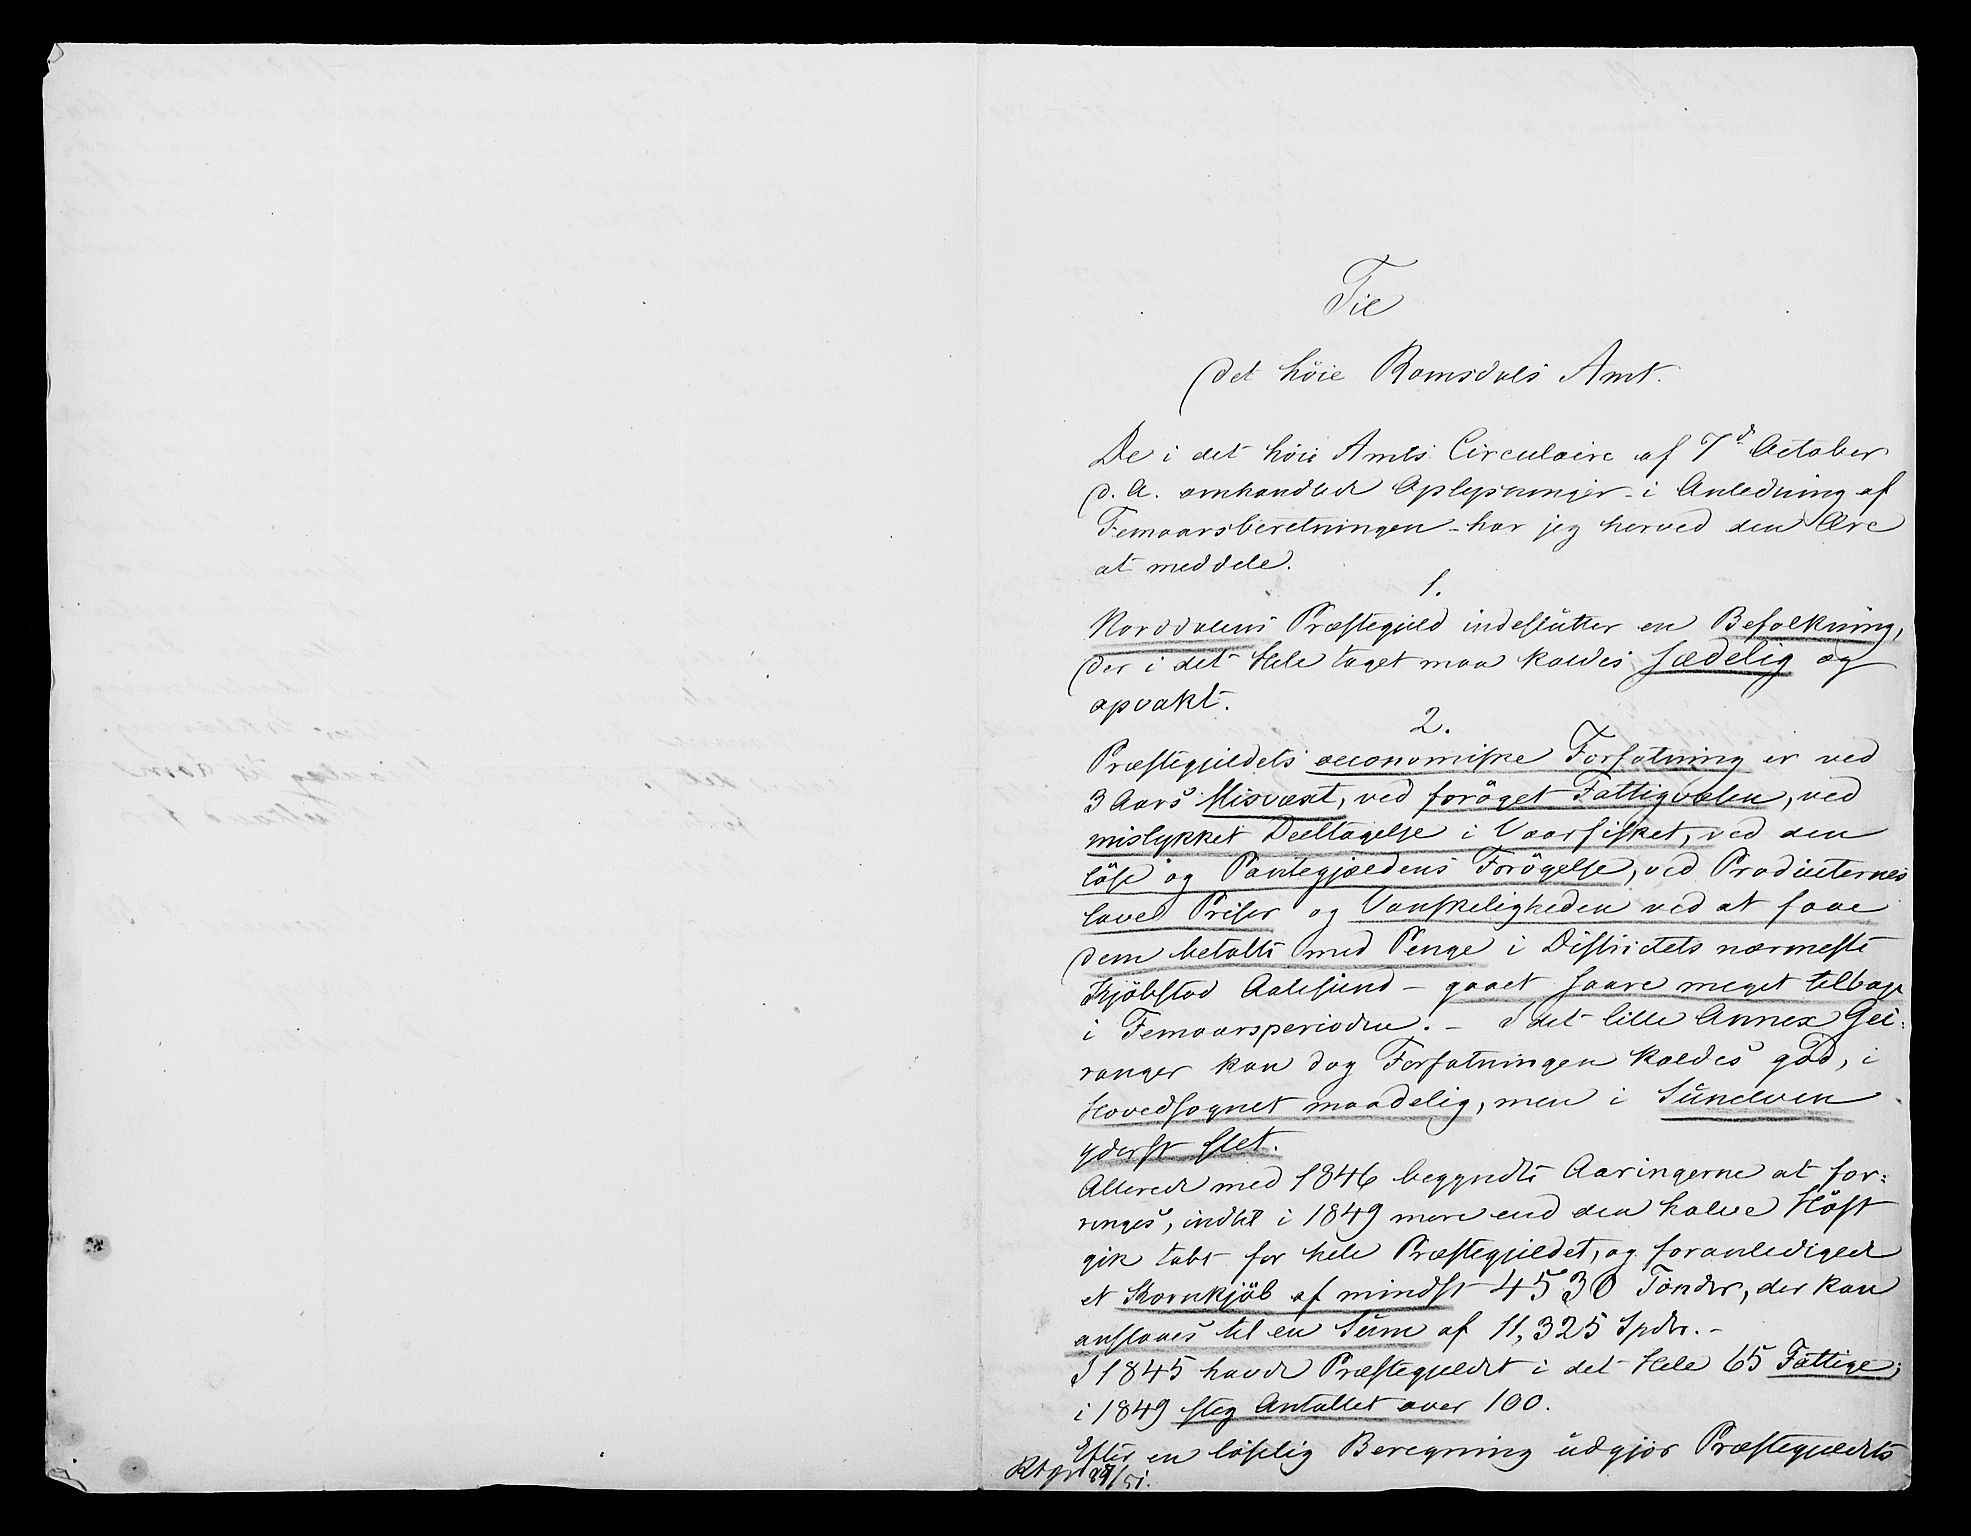 Til
det höie Romsdals Amt.
De i det höie Amts Circulaire af 7d October
d. A. omhandlede Oplysninger i Anledning af
Femaarsberetningen har jeg herved den Ære
at meddele.
1.
Norddalens Præstegjeld indeslutter en Befolkning,
der i det Hele taget maa kaldes sædelig og
opvakt.
2.
Præstegjeldets oeconomiske Forfatning er ved
3 Aars Misvæxt, ved foröget Fattigvæsen, ved
mislykket Deeltagelse i Vaarfisket, ved den
löse og Pantegjældens Forögelse, ved Producternes
lave Priser og Vanskeligheden ved at faae
dem betalte med Penge i Districtets nærmeste
Kjöbstad Aalesund – gaaet saare meget tilbage
i Femaarsperioden. – I det lille Annex Gei:
ranger kan dog Forfatningen kaldes god, i
Hovedsognet maadelig, men i Sunelven
yderst slet.
Allerede med 1846 begyndte Aaringerne at for:
ringes, indtil i 1849 mere end den halve Höst
gik tabt for hele Præstegjeldet, og foranledigede
et Kornkjöb af mindst 4530 Tönder, der kan
anslaaes til en Sum af 11,325 Spdr. –
I 1845 havde Præstegjeldet i det Hele 65 Fattige;
i 1849 steg Antallet over 100.
Efter en löselig Beregning udgjör Præstegjeldets